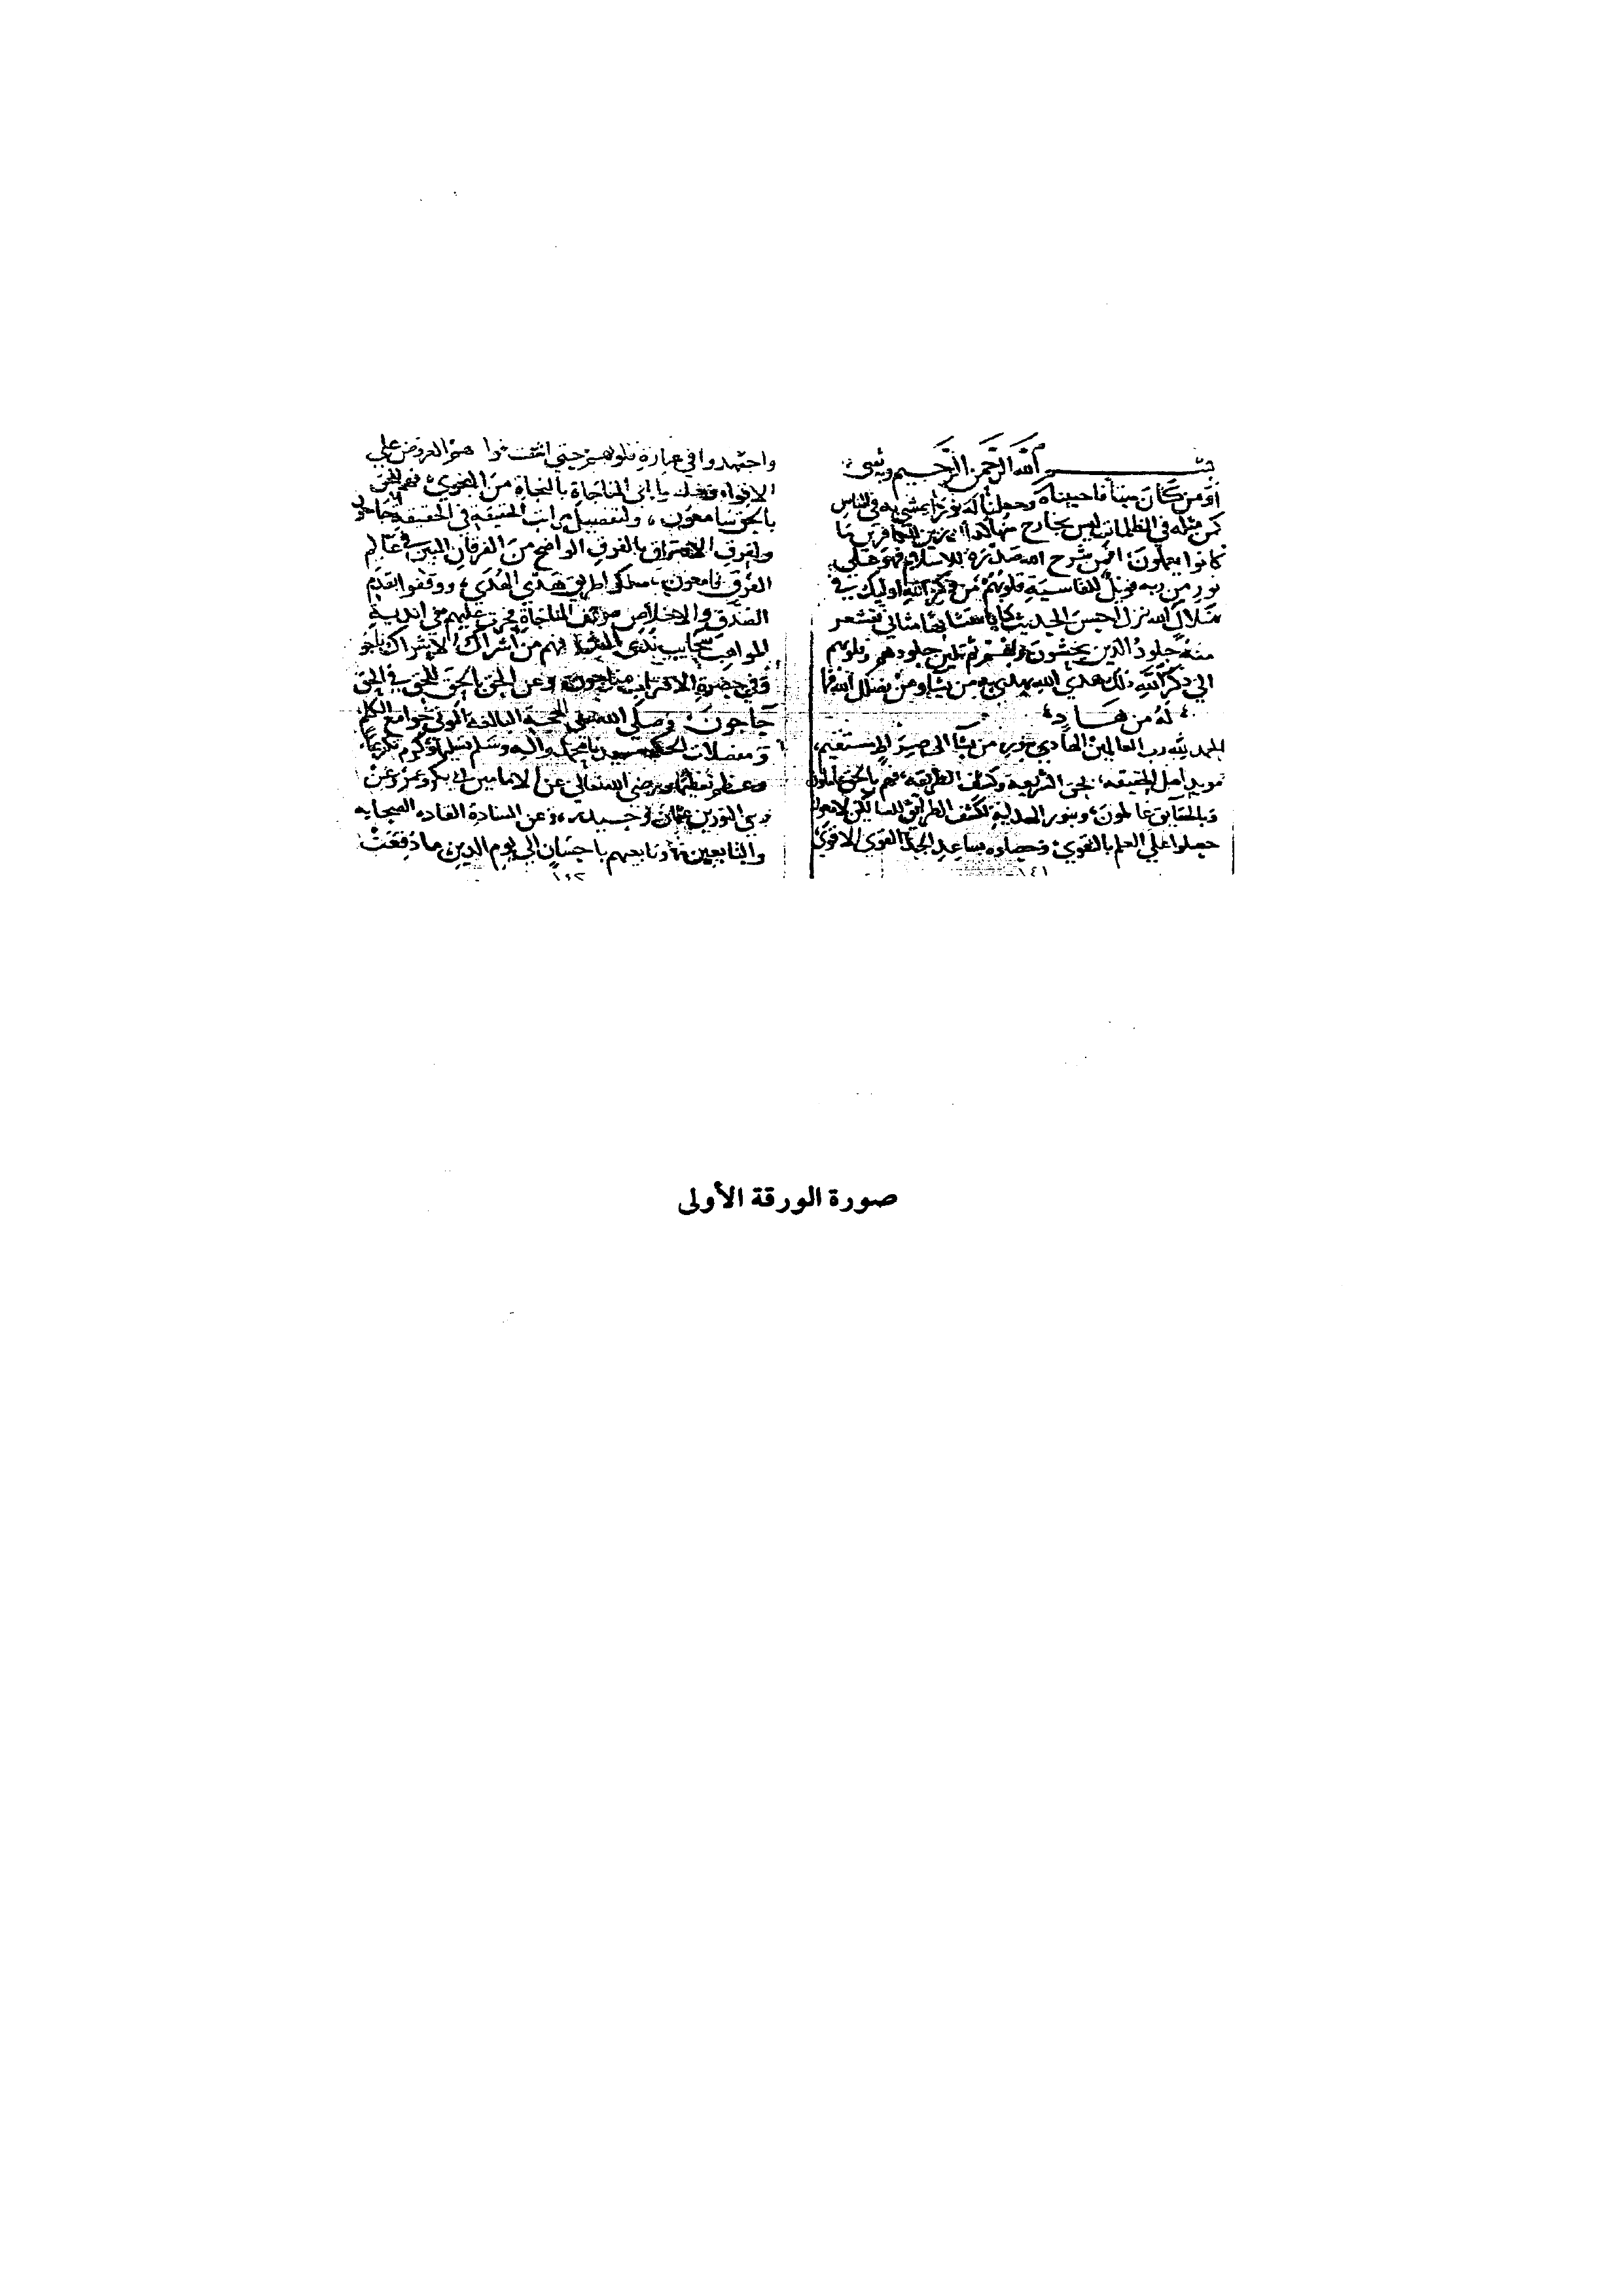 بسم الله الرحمن الرحيم وبه
أو من كان ميتا فاحييناه وجعلنا له نورا يمشي به في الناس
كمن مثله في الظلمات ليس بخارج منها كذلك زين للكافرين ما
كانوا يعملون افمن شرح الله صدره للاسلام فهو على
نور من ربه فويل للقاسية قلوبهم من ذكر الله اوليك في
ضلال الله نزل احسن الحديث كتابا متشابها مثاني تقشعر
منه جلود الذين يخشون ربهم ثم تلين جلودهم وقلوبهم
الى ذكر الله ذلك هدى الله يهدي به من يشا ومن يضلل الله فما
له من هاد
الحمد لله رب العالمين الهادي من يشا الى صراط مستقيم
مويد اهل الحقيقه بحق الشريعه وكشف الطريقه فهم بالحق عاملون
وبالحقايق عالمون وبنور الهداية لكشف الطرايق للسالكين
حصلوا على العلم بالتقوى وحصلوه بساعد الجد القوي الاقوى
١٤١
واجتهدوا في عبارة قلوبهم حتى العروض على
المناجاة بالنجاة من النجوى فهم للحق
بالحق سامعون ولتفصيل مراتب الحقيقه في الحقيقه
ولفرق الافتراق بالفرق الواضح من الفرقان المبين في عالم
الفرق سلكوا طريق هدى الهدى ووقفوا بقدم
الصدق والاخلاص موقف المناجاة فجرت عليهم في اندية
المواهب سحايب ندى فهم من اشراك الاشراك ناجو
وفي حضرة الاقتراب مناجون وعن الحق بالحق للحق في الحق
حاجون وصلى الله على الحجة البالغة الموتى جوامع الكلم
ومفصلات الحكم محمد واله وسلم تسليما وكرم تكريما
وعظم تعظيما ورضي الله تعالى عن الامامين ابي بكر وعمر وعن
ذي النورين عثمان وعن السادة القاده الصحابه
والتابعين وتابعيهم باحسان الى يوم الدين ما
١٤٢
صورة الورقة الأولى